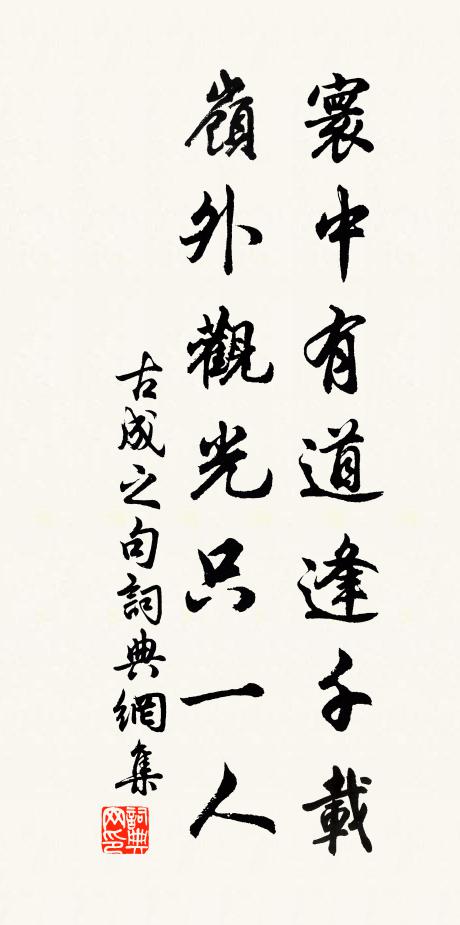 寰中有道逢千載
嶺外觀光只一人
古成之句詞典網集
詞典网印